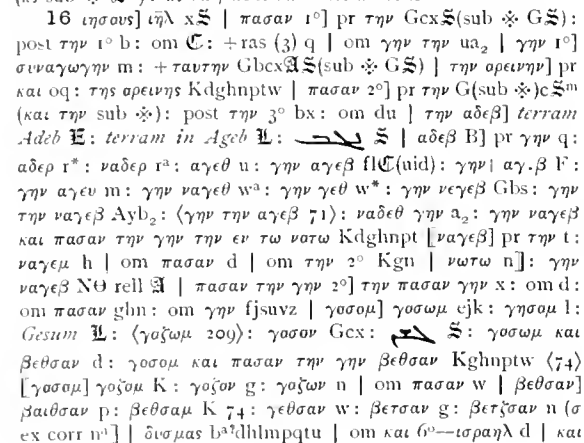 16 ιησους] ιηλ x𝕾 | πασαν 1º] pr την Gcx𝕾(sub ※ G𝕾):
post την 1º b: om ℭ: +ras (3) q | om γην την ua₂ | γην 1º]
συναγωγην m: + ταυτην Gbcx𝕬𝕾(sub ※ G𝕾) | την ορεινην] pr
και oq: της ορεινης Kdghnptw | πασαν 2º] pr την G(sub ※)c𝕾ᵐ
(και την sub ※): post την 3º bx: om du | την αδεβ] terram
Adeb 𝕰: terram in Ageb 𝕷: 𝕾 | αδεβ B] pr γην q:
αδερ r*: ναδερ rᵃ: αγεθ u: γην αγεβ flℭ(uid): γην| αγ.β F:
γην αγευ m: γην ναγεθ wᵃ: γην γεθ w*: γην νεγεβ Gbs: γην
την ναγεβ Ayb₂: ⟨γην την αγεβ 71⟩: ναδεθ γην a₂: γην ναγεβ
και πασαν την γην την εν τω νοτω Kdghnpt [ναγεβ] pr την t:
ναγεμ h | om πασαν d | om την 2º Kgn | νωτω n]: γην
ναγεβ NΘ rell 𝕬 | πασαν την γην 2º] την πασαν γην x: om d:
om πασαν ghn: om γην fjsuvz | γοσομ] γοσωμ ejk: γησομ l:
Gesum 𝕷: ⟨γοζωμ 209⟩: γοσον Gcx: 𝕾: γοσωμ και
βεθσαν d: γοσομ και πασαν την γην βεθσαν Kghnptw ⟨74⟩
[γοσομ] γοζομ K: γοζον g: γοζων n | om πασαν w | βεθσαν]
βαιθσαν p: βεθσαμ K 74: γεθσαν w: βετσαν g: βετζσαν n (σ
ex corr nᵃ)] | δυσμας bᵃ?dhlmpqtu | om και 6º—ισραηλ d | και